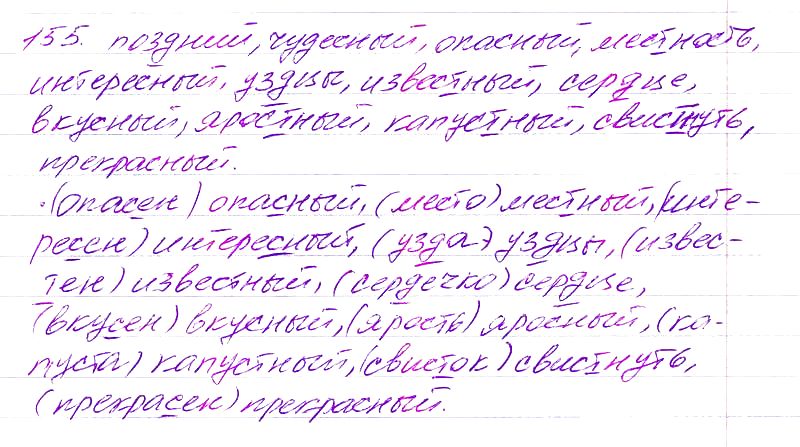 155. поздний, чудесный, опасный, местность,
интересный, уздцы, известный, сердце,
вкусный, яростный, капустный, свистнуть,
прекрасный.
(опасен) опасный, (место) местный, (инте-
ресен) интересный, (узда) уздцы, (извес-
тен) известный, (сердечко) сердце,
(вкусен) вкусный, (ярость) яросный, (ка-
пуста) капустный, (свисток) свистнуть,
(прекрасен) прекрасный.